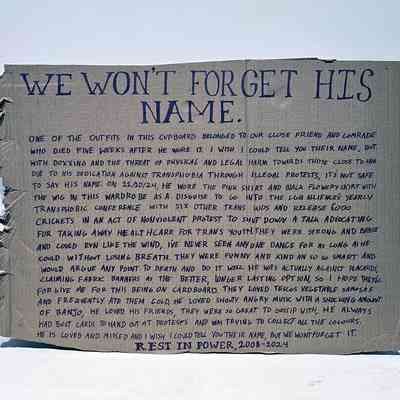 WE WON'T FORGET HIS
NAME.
ONE OF THE OUTFITS IN THIS CUPBOARD BELONGED TO OUR CLOSE FRIEND AND COMRADE
WHO DIED FIVE WEEKS AFTER HE WORE IT. I WISH I COULD TELL YOU THEIR NAME, BUT
WITH DOXXING AND THE THREAT OF PHYSICAL AND LEGAL HARM TOWARDS THOSE CLOSE TO HIM
DUE TO HIS DEDICATION AGAINST TRANSPHOBIA THROUGH ILLEGAL PROTESTS, IT'S NOT SAFE
TO SAY HIS NAME. ON 11/10/24, HE WORE THE PINK SHIRT AND BLACK FLOWERY SKIRT WITH
THE WIG IN THIS WARDROBE AS A DISGUISE TO GO INTO THE LGB ALLIENCE'S YEARLY
TRANSPHOBIC CONFERENCE WITH SIX OTHER TRANS KIDS AND RELEASE 6000
CRICKETS IN AN ACT OF NONVIOLENT PROTEST TO SHUT DOWN A TALK ADVOCATING
FOR TAKING AWAY HEALTHCARE FOR TRANS YOUTH. THEY WERE STRONG AND BRAVE
AND COULD RUN LIKE THE WIND, I'VE NEVER SEEN ANYONE DANCE FOR AS LONG AS HE
COULD WITHOUT LOSING BREATH. THEY WERE FUNNY AND KIND AN SO SO SMART AND
WOULD ARGUE ANY POINT TO DEATH AND DO IT WELL. HE WAS ACTUALLY AGAINST PLACARDS,
CLAIMING FABRIC BANNERS AS THE BETTER, LONGER LASTING OPTION, SO I HOPE THEY'LL
FORGIVE ME FOR THIS BEING ON CARDBOARD. THEY LOVED TESCOS VEGETABLE SAMOSAS
AND FREQUENTLY ATE THEM COLD. HE LOVED SHOUTY ANGRY MUSIC WITH A SHOCKING AMOUNT
OF BANJO, HE LOVED HIS FRIENDS, THEY WERE SO GREAT TO GOSSIP WITH, HE ALWAYS
HAD BUST CARDS TO HAND OUT AT PROTESTS AND WAS TRYING TO COLLECT ALL THE COLOURS.
HE IS LOVED AND MISSED AND I WISH I COULD TELL YOU THEIR NAME, BUT WE WONT FORGET IT.
REST IN POWER, 2008-2024